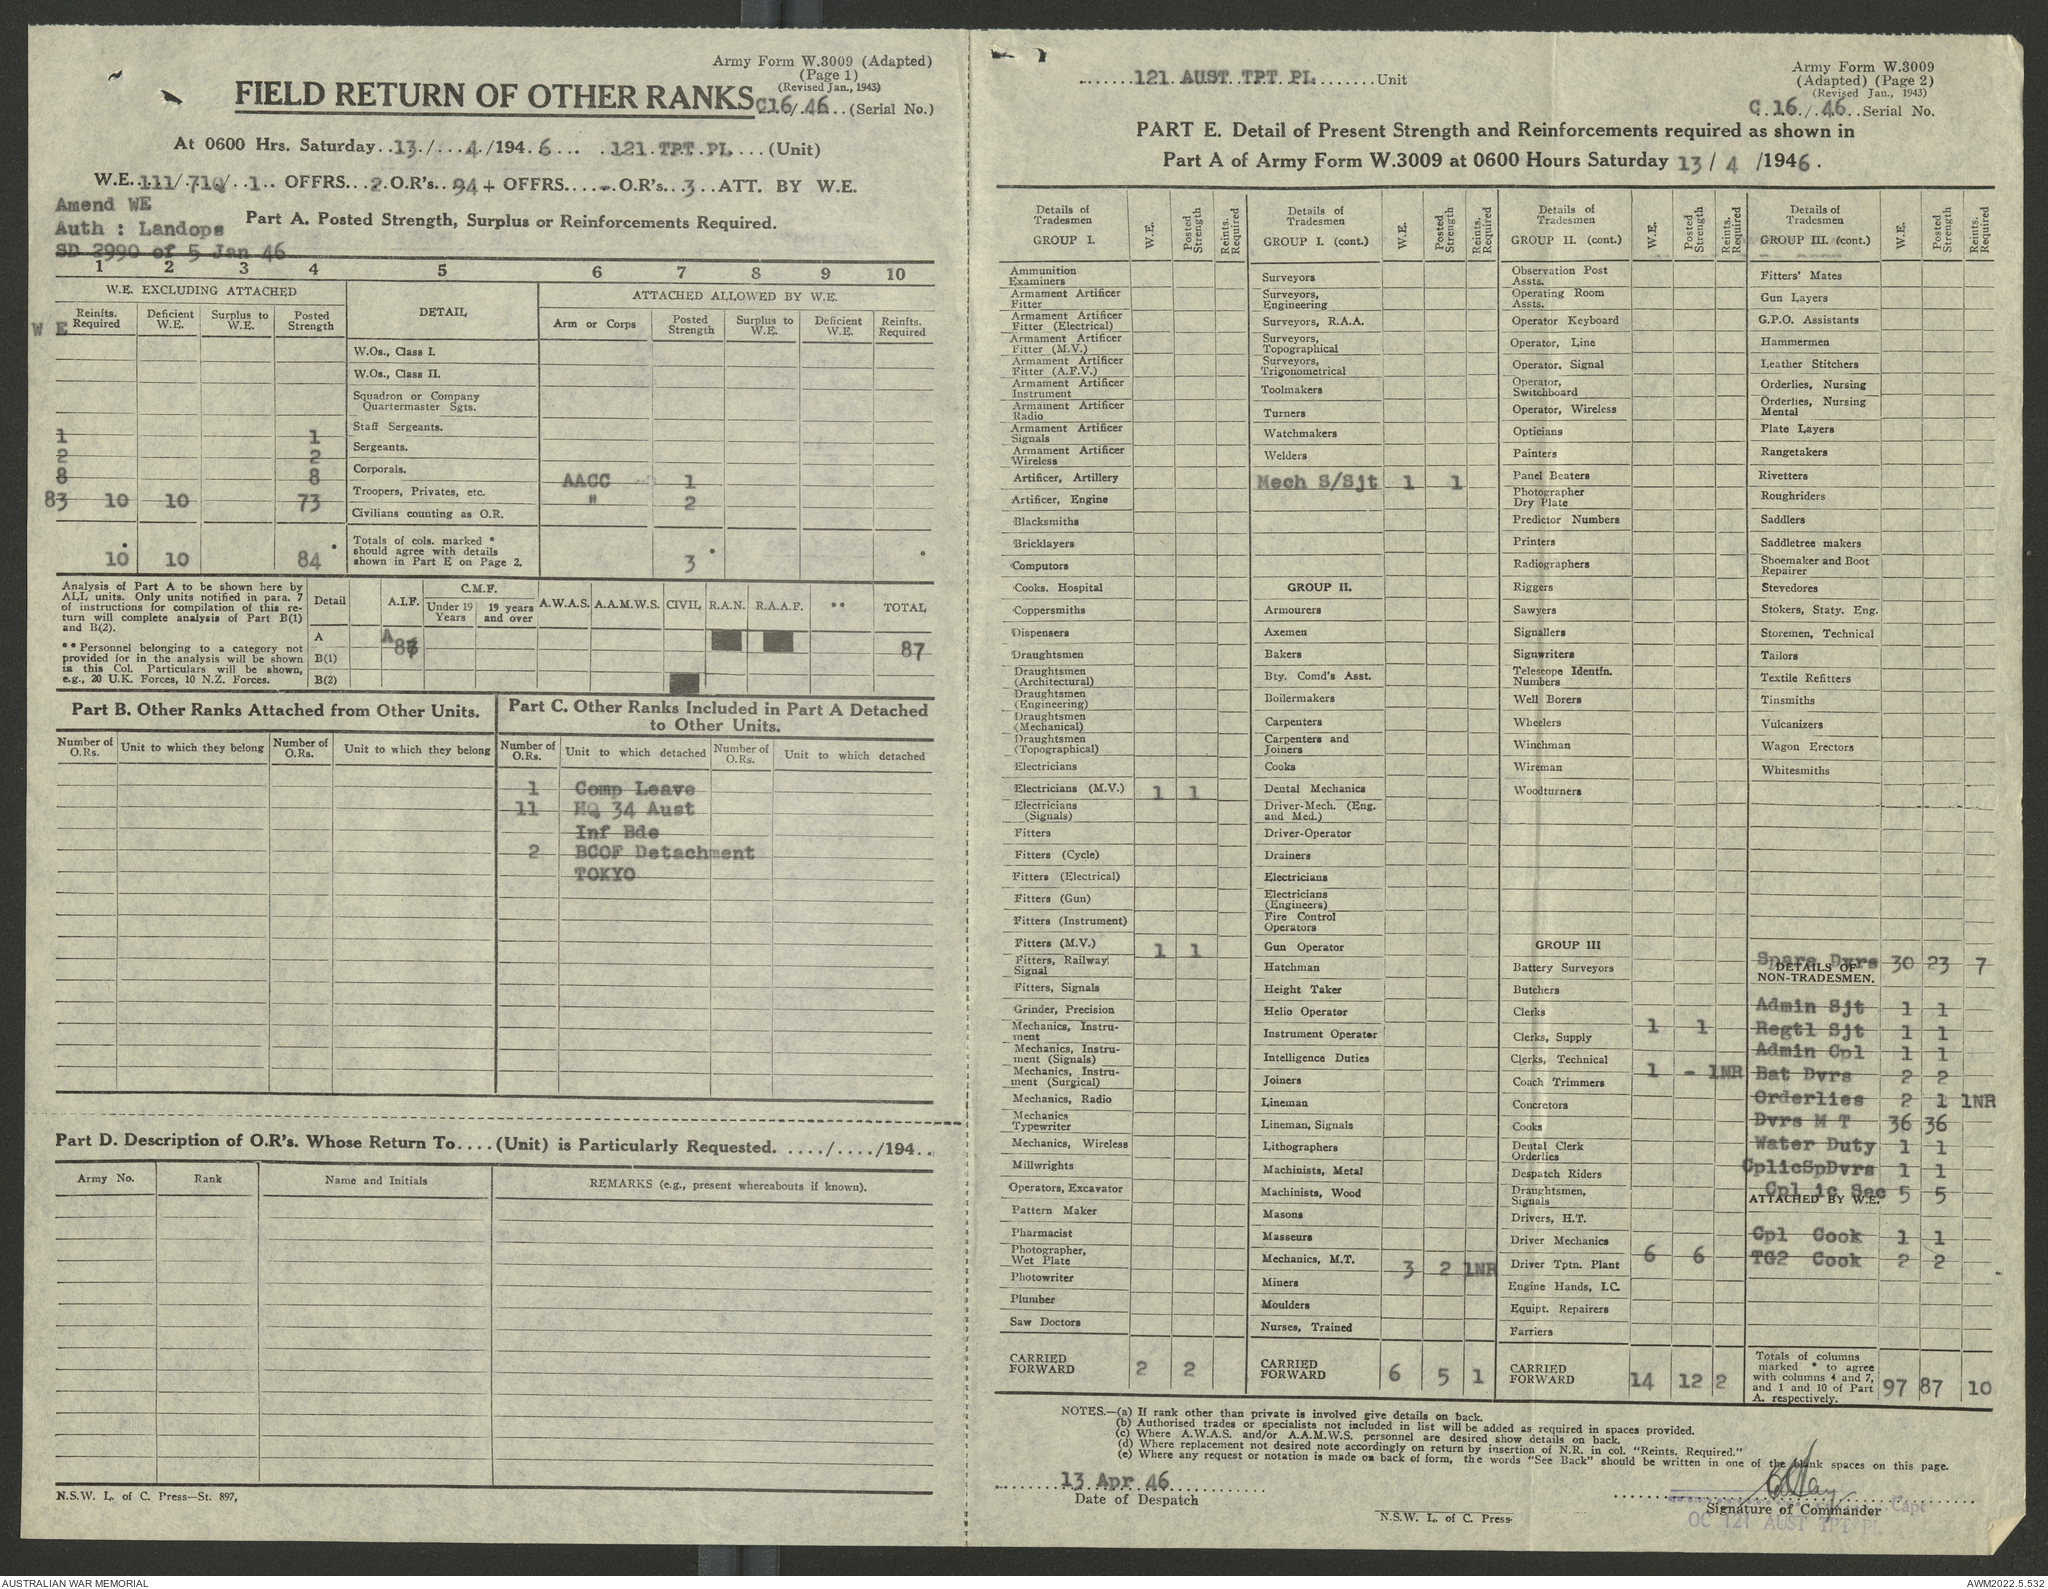 Army Form W.3009 (Adapted)
(Page 1)
(Revised Jan., 1943)
FIELD RETURN OF OTHER RANKS C16/.46..(Serial No.)
At 0600 Hrs. Saturday..13./...4./194.6... .121.TPT.PL....(Unit)
W.E..111/.710/..1.. OFFRS...2.O.R's...94+ OFFRS....-.O.R's...3..ATT. BY W.E.
Amend WE
Auth : Landops
SD 2990 of 5 Jan 46
Part A. Posted Strength, Surplus or Reinforcements Required.
1 2 3 4 5 6 7 8 9 10
W.E. EXCLUDING ATTACHED DETAIL ATTACHED ALLOWED BY W.E.
W E Reinfts. Required Deficient W.E. Surplus to W.E. Posted Strength Arm or Corps Posted Strength Surplus to W.E. Deficient W.E. Reinfts. Required
W.Os., Class I.
W.Os., Class II.
Squadron or Company Quartermaster Sgts.
Staff Sergeants.
1 1 Sergeants.
2 2
8 8 Corporals. AACC 1
83 10 10 73 Troopers, Privates, etc. " 2
Civilians counting as O.R.
10 10 84 Totals of cols. marked * should agree with details shown in Part E on Page 2. 3
Analysis of Part A to be shown here by ALL units. Only units notified in para. 7 of instructions for compilation of this return will complete analysis of Part B(1) and B(2).
** Personnel belonging to a category not provided for in the analysis will be shown in this Col. Particulars will be shown, e.g., 20 U.K. Forces, 10 N.Z. Forces.
Detail A.I.F. C.M.F. Under 19 Years 19 years and over A.W.A.S. A.A.M.W.S. CIVIL R.A.N. R.A.A.F. ** TOTAL
A A 87 87
B(1)
B(2)
Part B. Other Ranks Attached from Other Units.
Number of O.Rs. Unit to which they belong Number of O.Rs. Unit to which they belong
Part C. Other Ranks Included in Part A Detached to Other Units.
Number of O.Rs. Unit to which detached Number of O.Rs. Unit to which detached
1 Comp Leave
11 HQ 34 Aust
Inf Bde
2 BCOF Detachment
TOKYO
Part D. Description of O.R's. Whose Return To....(Unit) is Particularly Requested. ..../..../194..
Army No. Rank Name and Initials REMARKS (e.g., present whereabouts if known).
N.S.W. L. of C. Press—St. 897,
.......121 AUST TPT PL.......Unit
Army Form W.3009
(Adapted) (Page 2)
(Revised Jan., 1943)
C.16./.46..Serial No.
PART E. Detail of Present Strength and Reinforcements required as shown in
Part A of Army Form W.3009 at 0600 Hours Saturday 13/ 4 /1946.
Details of Tradesmen GROUP I. W.E. Posted Strength Reints. Required
Ammunition Examiners
Armament Artificer Fitter
Armament Artificer Fitter (Electrical)
Armament Artificer Fitter (M.V.)
Armament Artificer Fitter (A.F.V.)
Armament Artificer Instrument
Armament Artificer Radio
Armament Artificer Signals
Armament Artificer Wireless
Artificer, Artillery
Artificer, Engine
Blacksmiths
Bricklayers
Computors
Cooks. Hospital
Coppersmiths
Dispensers
Draughtsmen
Draughtsmen (Architectural)
Draughtsmen (Engineering)
Draughtsmen (Mechanical)
Draughtsmen (Topographical)
Electricians
Electricians (M.V.) 1 1
Electricians (Signals)
Fitters
Fitters (Cycle)
Fitters (Electrical)
Fitters (Gun)
Fitters (Instrument)
Fitters (M.V.) 1 1
Fitters, Railway Signal
Fitters, Signals
Grinder, Precision
Mechanics, Instrument
Mechanics, Instrument (Signals)
Mechanics, Instrument (Surgical)
Mechanics, Radio
Mechanics Typewriter
Mechanics, Wireless
Millwrights
Operators, Excavator
Pattern Maker
Pharmacist
Photographer, Wet Plate
Photowriter
Plumber
Saw Doctors
CARRIED FORWARD 2 2
Details of Tradesmen GROUP I. (cont.) W.E. Posted Strength Reints. Required
Surveyors
Surveyors, Engineering
Surveyors, R.A.A.
Surveyors, Topographical
Surveyors, Trigonometrical
Toolmakers
Turners
Watchmakers
Welders
Mech S/Sjt 1 1
GROUP II.
Armourers
Axemen
Bakers
Bty. Comd's Asst.
Boilermakers
Carpenters
Carpenters and Joiners
Cooks
Dental Mechanics
Driver-Mech. (Eng. and Med.)
Driver-Operator
Drainers
Electricians
Electricians (Engineers)
Fire Control Operators
Gun Operator
Hatchman
Height Taker
Helio Operator
Instrument Operator
Intelligence Duties
Joiners
Lineman
Lineman, Signals
Lithographers
Machinists, Metal
Machinists, Wood
Masons
Masseurs
Mechanics, M.T. 3 2 1NR
Miners
Moulders
Nurses, Trained
CARRIED FORWARD 6 5 1
Details of Tradesmen GROUP II. (cont.) W.E. Posted Strength Reints. Required
Observation Post Assts.
Operating Room Assts.
Operator Keyboard
Operator, Line
Operator, Signal
Operator, Switchboard
Operator, Wireless
Opticians
Painters
Panel Beaters
Photographer Dry Plate
Predictor Numbers
Printers
Radiographers
Riggers
Sawyers
Signallers
Signwriters
Telescope Identfn. Numbers
Well Borers
Wheelers
Winchman
Wireman
Woodturners
GROUP III
Battery Surveyors
Butchers
Clerks 1 1
Clerks, Supply
Clerks, Technical 1 - 1NR
Coach Trimmers
Concretors
Cooks
Dental Clerk Orderlies
Despatch Riders
Draughtsmen, Signals
Drivers, H.T.
Driver Mechanics 6 6
Driver Tptn. Plant
Engine Hands, I.C.
Equipt. Repairers
Farriers
CARRIED FORWARD 14 12 2
Details of Tradesmen GROUP III. (cont.) W.E. Posted Strength Reints. Required
Fitters' Mates
Gun Layers
G.P.O. Assistants
Hammermen
Leather Stitchers
Orderlies, Nursing
Orderlies, Nursing Mental
Plate Layers
Rangetakers
Rivetters
Roughriders
Saddlers
Saddletree makers
Shoemaker and Boot Repairer
Stevedores
Stokers, Staty. Eng.
Storemen, Technical
Tailors
Textile Refitters
Tinsmiths
Vulcanizers
Wagon Erectors
Whitesmiths
Spare Dvrs 30 23 7
DETAILS OF NON-TRADESMEN.
Admin Sjt 1 1
Regtl Sjt 1 1
Admin Cpl 1 1
Bat Dvrs 2 2
Orderlies 2 1 1NR
Dvrs M T 36 36
Water Duty 1 1
CplicSpDvrs 1 1
Cpl ic Sec 5 5
ATTACHED BY W.E.
Cpl Cook 1 1
TG2 Cook 2 2
Totals of columns marked * to agree with columns 4 and 7, and 1 and 10 of Part A. respectively. 97 87 10
NOTES.—(a) If rank other than private is involved give details on back.
(b) Authorised trades or specialists not included in list will be added as required in spaces provided.
(c) Where A.W.A.S. and/or A.A.M.W.S. personnel are desired show details on back.
(d) Where replacement not desired note accordingly on return by insertion of N.R. in col. "Reints. Required."
(e) Where any request or notation is made on back of form, the words "See Back" should be written in one of the blank spaces on this page.
13 Apr 46
Date of Despatch
N.S.W. L. of C. Press.
Capt
Signature of Commander
OC 121 AUST TPT PL
AUSTRALIAN WAR MEMORIAL
AWM2022.5.532